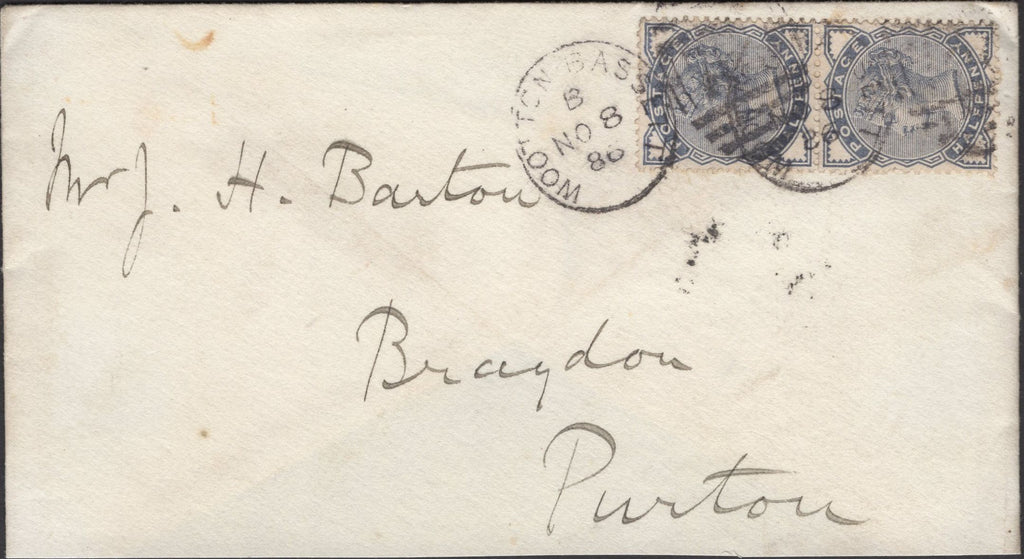 WOOTTON BASSETT
B
NO 8
86
POSTAGE HALFPENNY
POSTAGE HALFPENNY
Mr J. H. Barton
Braydon
Purton